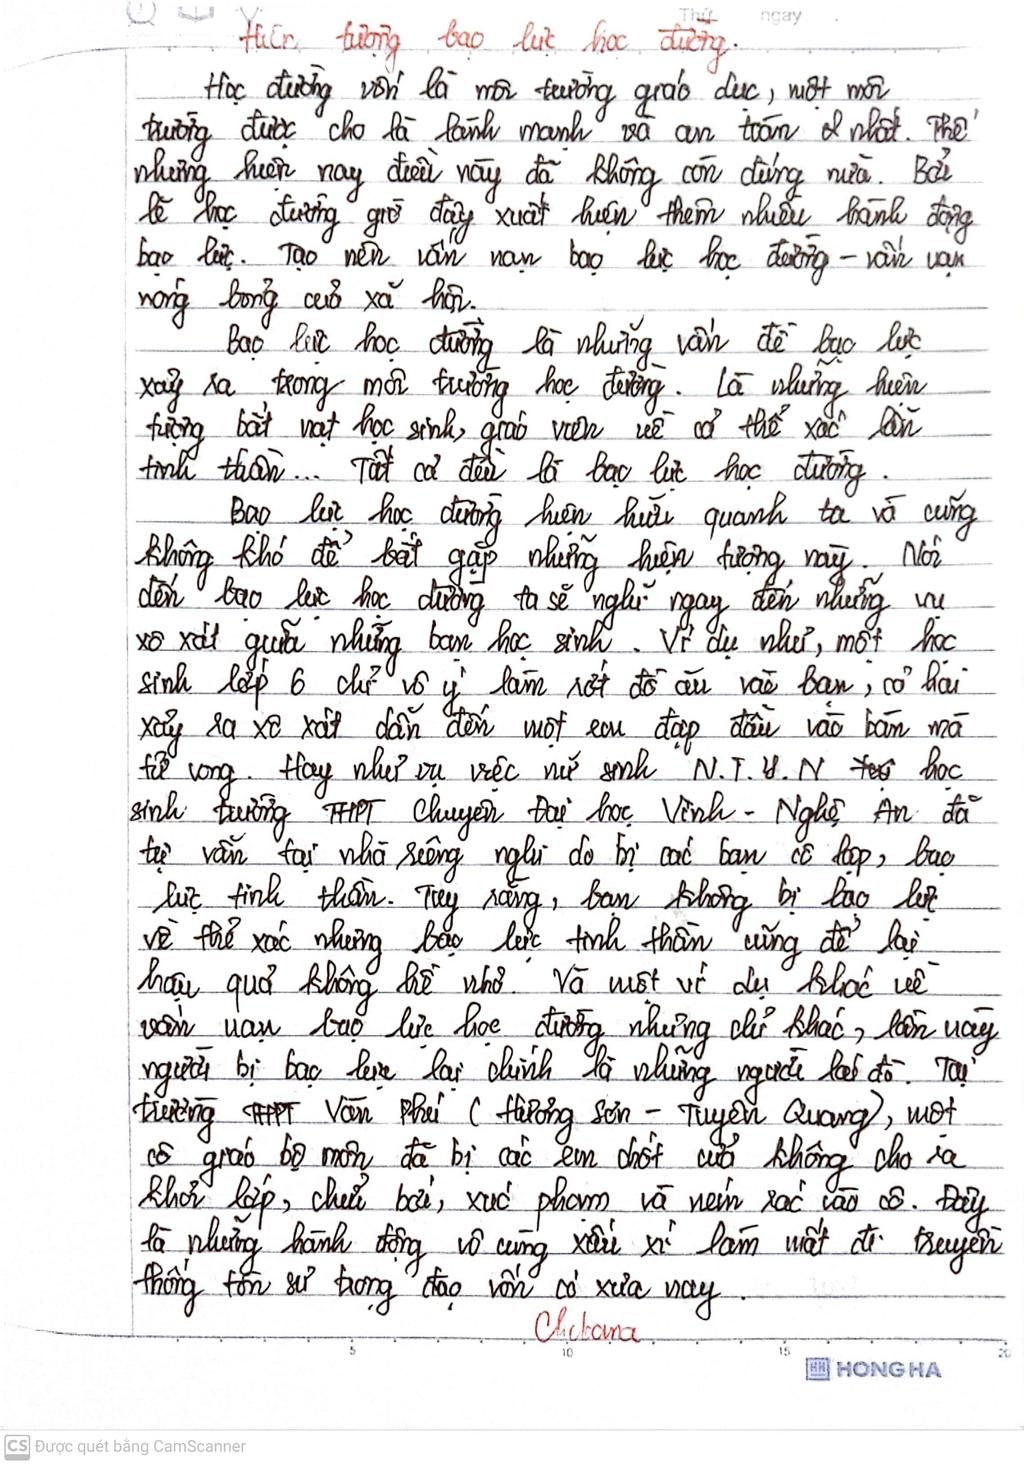 Thứ ngày
Hiện tượng bạo lực học đường.
Học đường vốn là môi trường giáo dục, một môi
trường được cho là lành mạnh và an toàn nhất. Thế
nhưng hiện nay điều này đã không còn đúng nữa. Bởi
lẽ học đường giờ đây xuất hiện thêm nhiều hành động
bạo lực. Tạo nên vấn nạn bạo lực học đường - vấn nạn
nóng bỏng của xã hội.
Bạo lực học đường là những vấn đề bạo lực
xảy ra trong môi trường học đường. Là những hiện
tượng bắt nạt học sinh, giáo viên về cả thể xác lẫn
tinh thần... Tất cả đều là bạo lực học đường.
Bạo lực học đường hiện hữu quanh ta và cũng
không khó để bắt gặp những hiện tượng này. Nói
đến bạo lực học đường ta sẽ nghĩ ngay đến những vụ
xô xát giữa những bạn học sinh. Ví dụ như, một học
sinh lớp 6 chỉ vô ý làm rớt đồ ăn vào bạn, cả hai
xảy ra xô xát dẫn đến một em đập đầu vào bàn mà
tử vong. Hay như vụ việc nữ sinh N.T.Y.N học
sinh trường THPT Chuyên Đại học Vinh - Nghệ An đã
tự vẫn tại nhà riêng nghi do bị các bạn cô lập, bạo
lực tinh thần. Tuy rằng, bạn không bị bạo lực
về thể xác nhưng bạo lực tinh thần cũng để lại
hậu quả không hề nhỏ. Và một ví dụ khác về
vấn nạn bạo lực học đường nhưng chỉ khác, lần này
người bị bạo lực lại chính là những người lái đò. Tại
trường THPT Văn Phú (Hương Sơn - Tuyên Quang), một
cô giáo bộ môn đã bị các em chốt cửa không cho ra
khỏi lớp, chửi bới, xúc phạm và ném rác vào cô. Đây
là những hành động vô cùng xấu xí làm mất đi truyền
thống tôn sư trọng đạo vốn có xưa nay.
5 10 15 20
HH HONG HA
CS Được quét bằng CamScanner